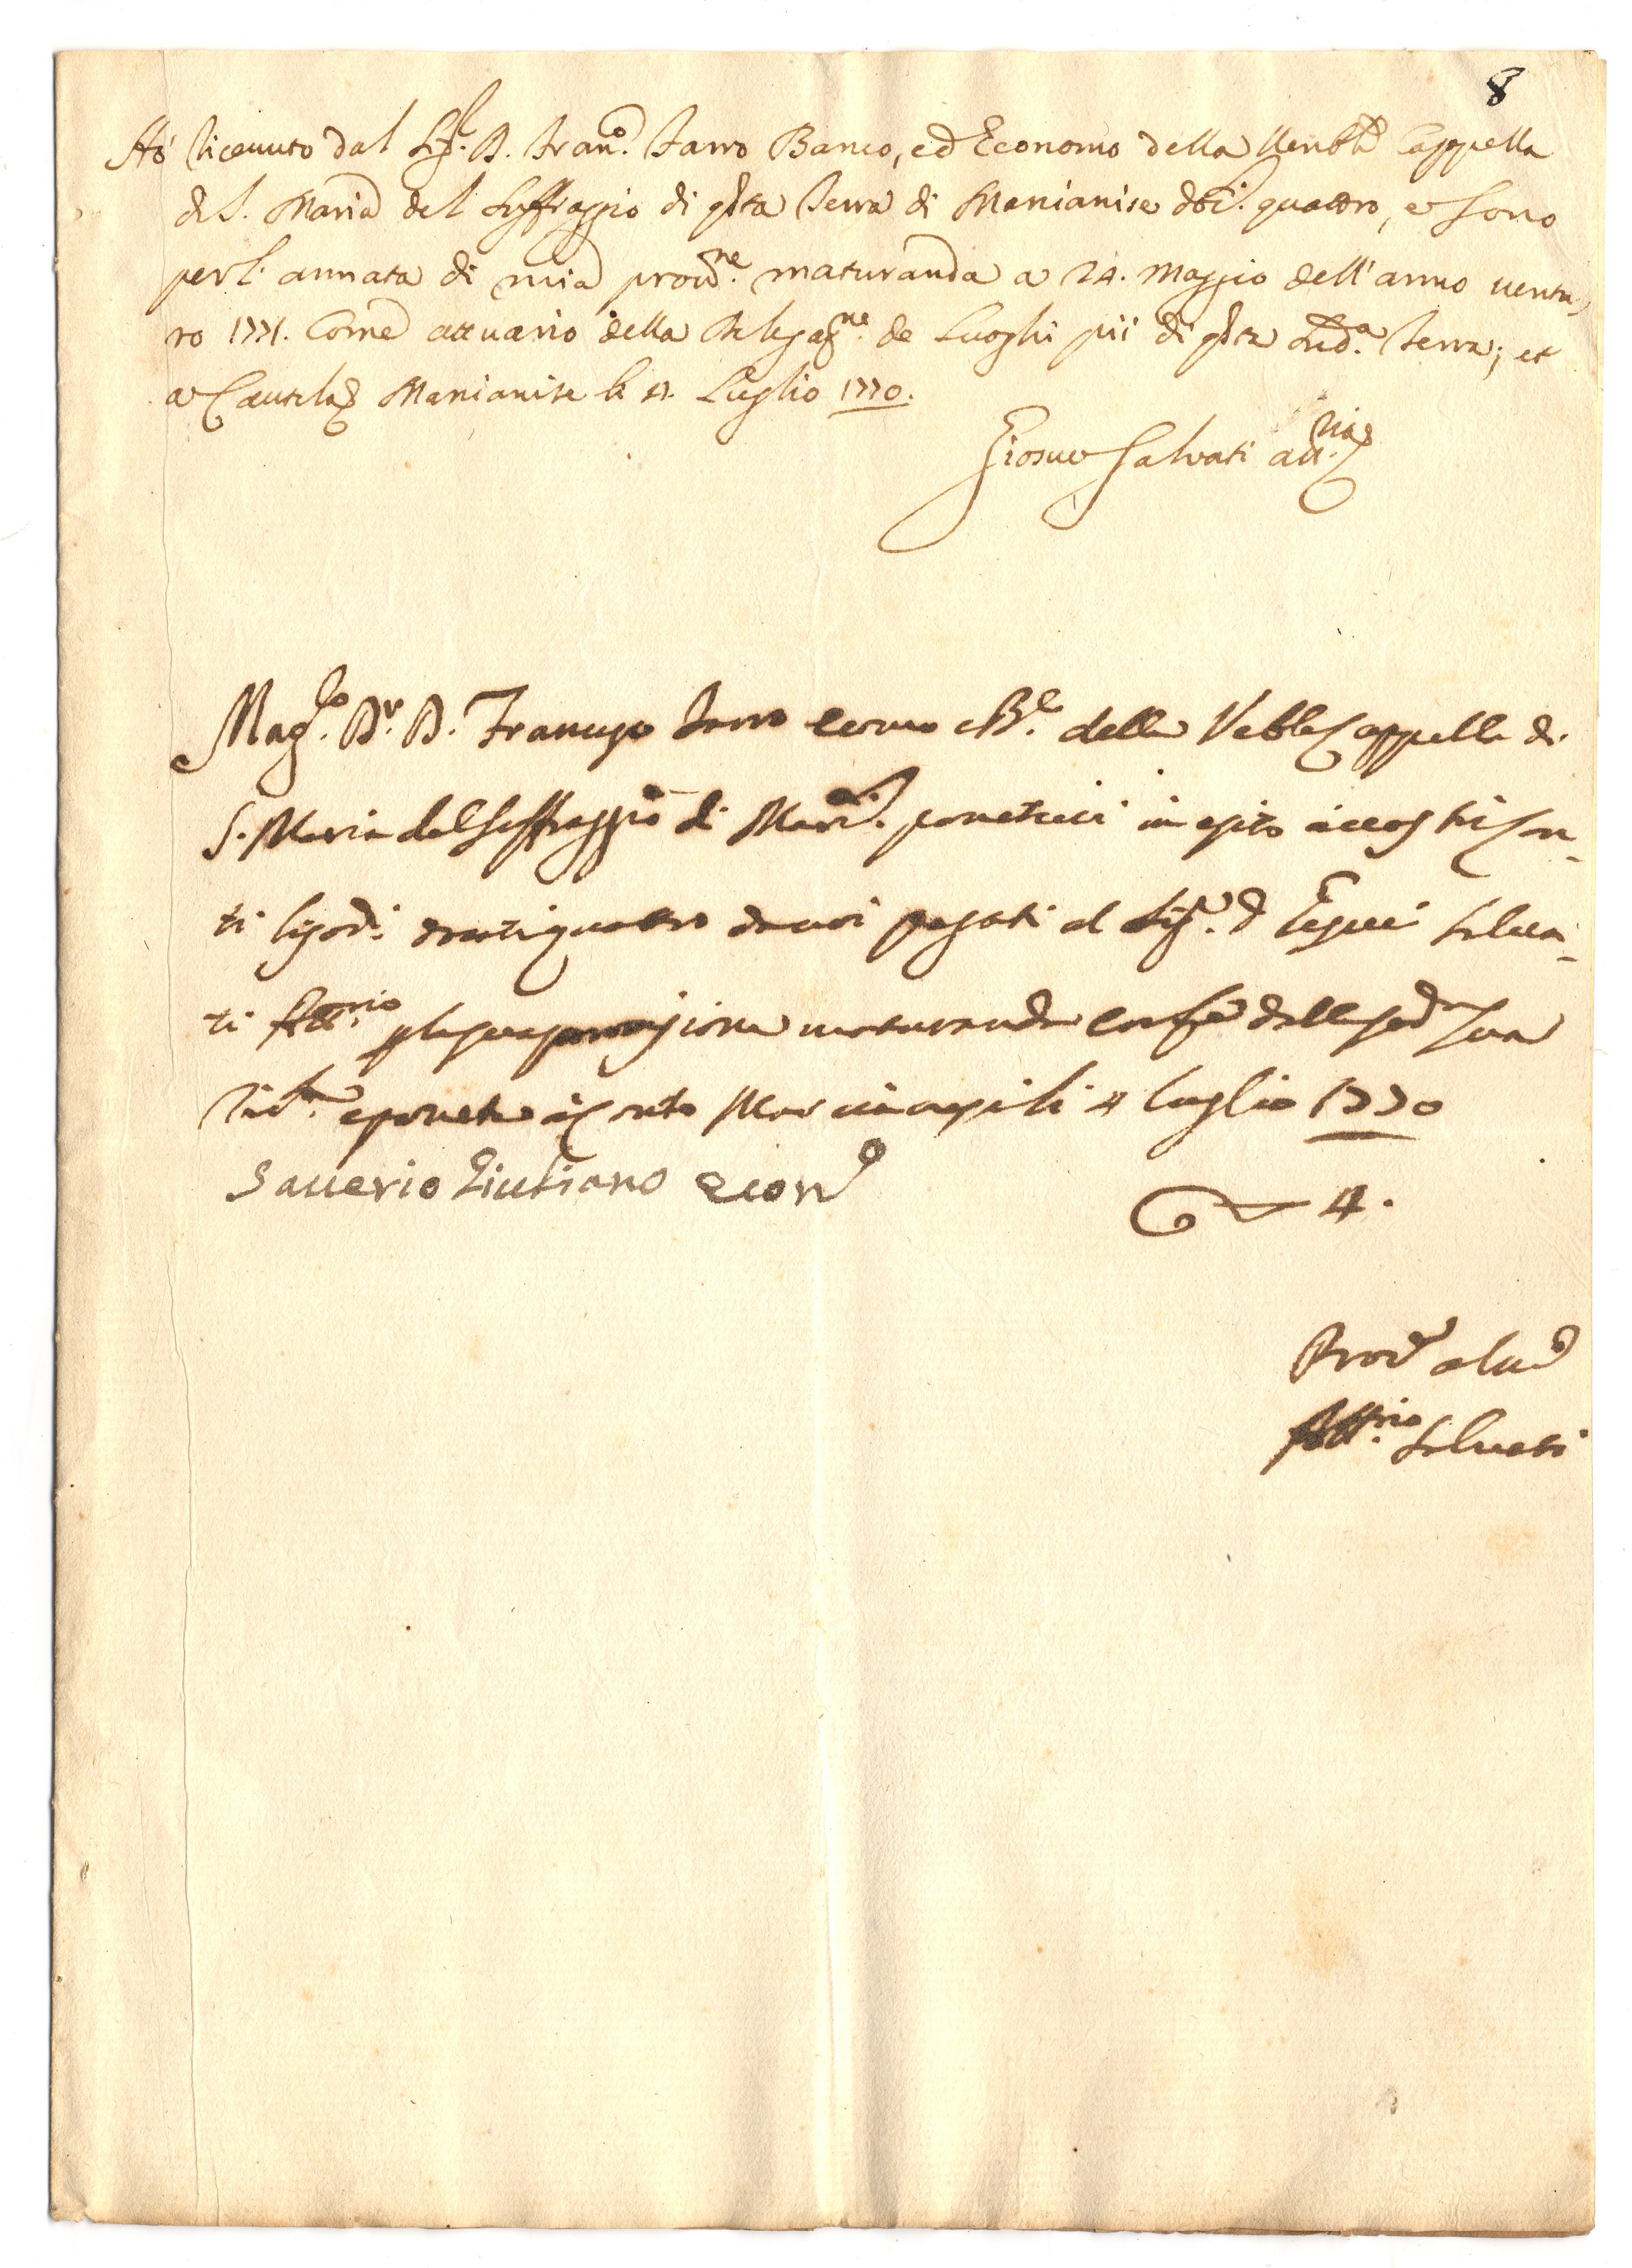 8
Hò ricevuto dal Sig.r D. Fran.co Tarro Banco, ed Economo della Venb.le Cappella
di S. Maria del Suffraggio di q.sta Terra di Marcianise d.ti quattro, e sono
per l'annata di mia prov.ne maturanda a 24. Maggio dell'anno ventu,
ro 1771. Come attuario della Delegaz.ne de Luoghi pii di q.sta sud.a Terra; et
a Cautela Marcianise li 4. Luglio 1770.
Giosue Salvati att.rio
Mag.co D.r D. Francesco Tarro della Veb.le Cappella di
S. Maria del Suffraggio di Marc.e ponetevi in esito à vostri Con-
ti docati quattro da voi pagati al Sig.r D. Giosuè Salva-
ti Att.rio maturanda dalla sua
ric.ta e ponete à conto Marcianise li 4 luglio 1770
Saverio Giuliano Econ.o
4.
Prov.e al
Att.rio Salvati